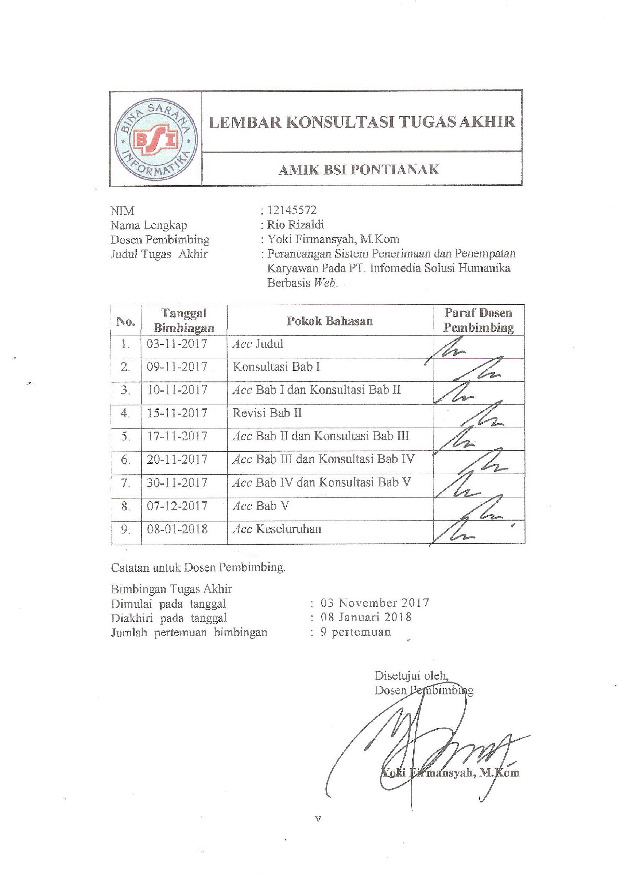 BINA SARANA
BSI
INFORMATIKA
LEMBAR KONSULTASI TUGAS AKHIR
AMIK BSI PONTIANAK
NIM : 12145572
Nama Lengkap : Rio Rizaldi
Dosen Pembimbing : Yoki Firmansyah, M.Kom
Judul Tugas Akhir : Perancangan Sistem Penerimaan dan Penempatan
Karyawan Pada PT. Infomedia Solusi Humanika
Berbasis Web.
No. Tanggal Bimbingan Pokok Bahasan Paraf Dosen Pembimbing
1. 03-11-2017 Acc Judul
2. 09-11-2017 Konsultasi Bab I
3. 10-11-2017 Acc Bab I dan Konsultasi Bab II
4. 15-11-2017 Revisi Bab II
5. 17-11-2017 Acc Bab II dan Konsultasi Bab III
6. 20-11-2017 Acc Bab III dan Konsultasi Bab IV
7. 30-11-2017 Acc Bab IV dan Konsultasi Bab V
8. 07-12-2017 Acc Bab V
9. 08-01-2018 Acc Keseluruhan
Catatan untuk Dosen Pembimbing.
Bimbingan Tugas Akhir
Dimulai pada tanggal : 03 November 2017
Diakhiri pada tanggal : 08 Januari 2018
Jumlah pertemuan bimbingan : 9 pertemuan
Disetujui oleh,
Dosen Pembimbing
Yoki Firmansyah, M.Kom
v